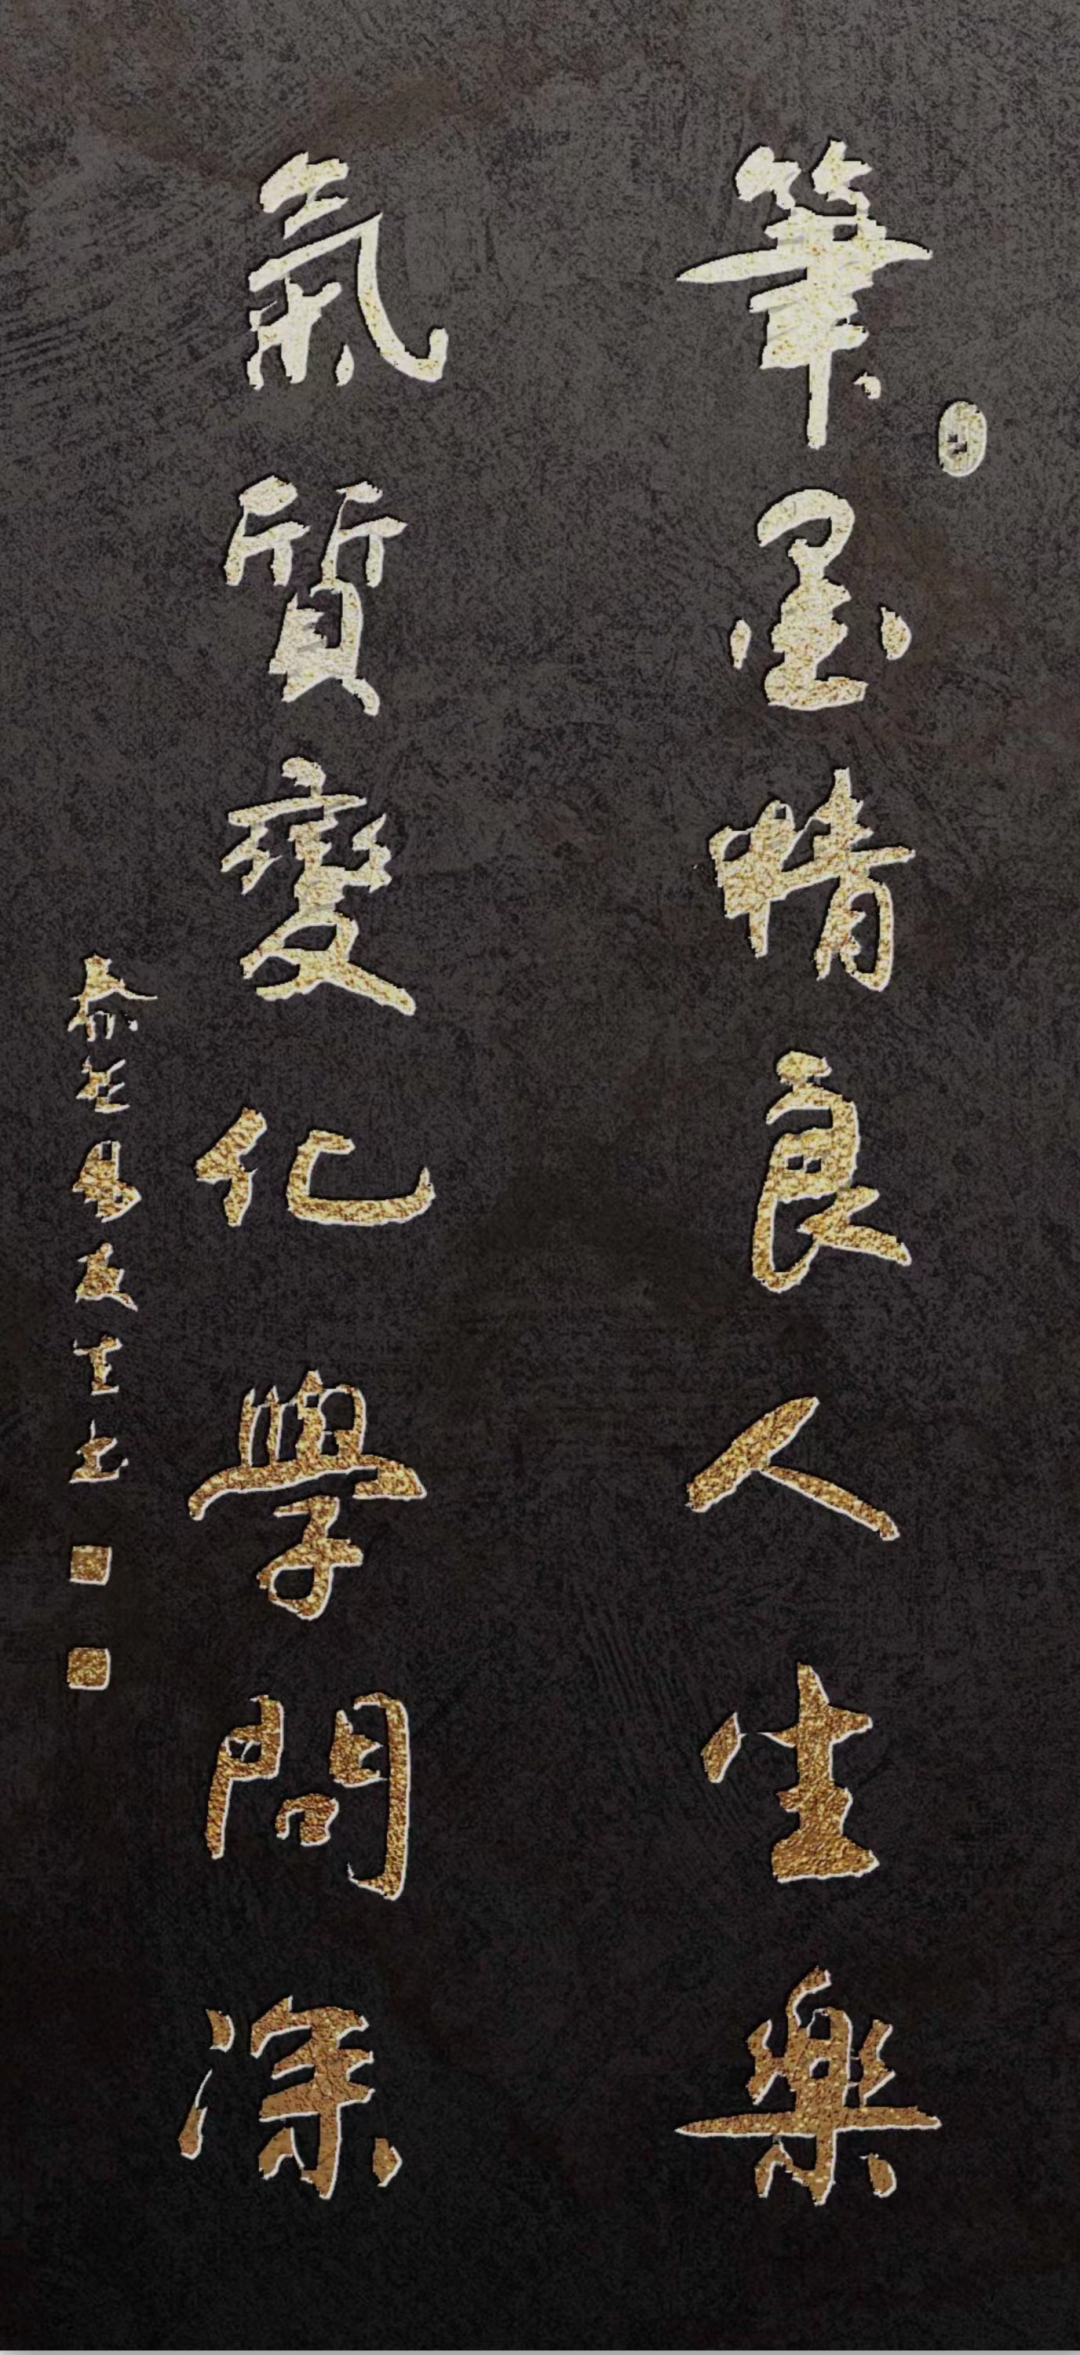 筆墨精良人生樂
氣質變化學問深
友生